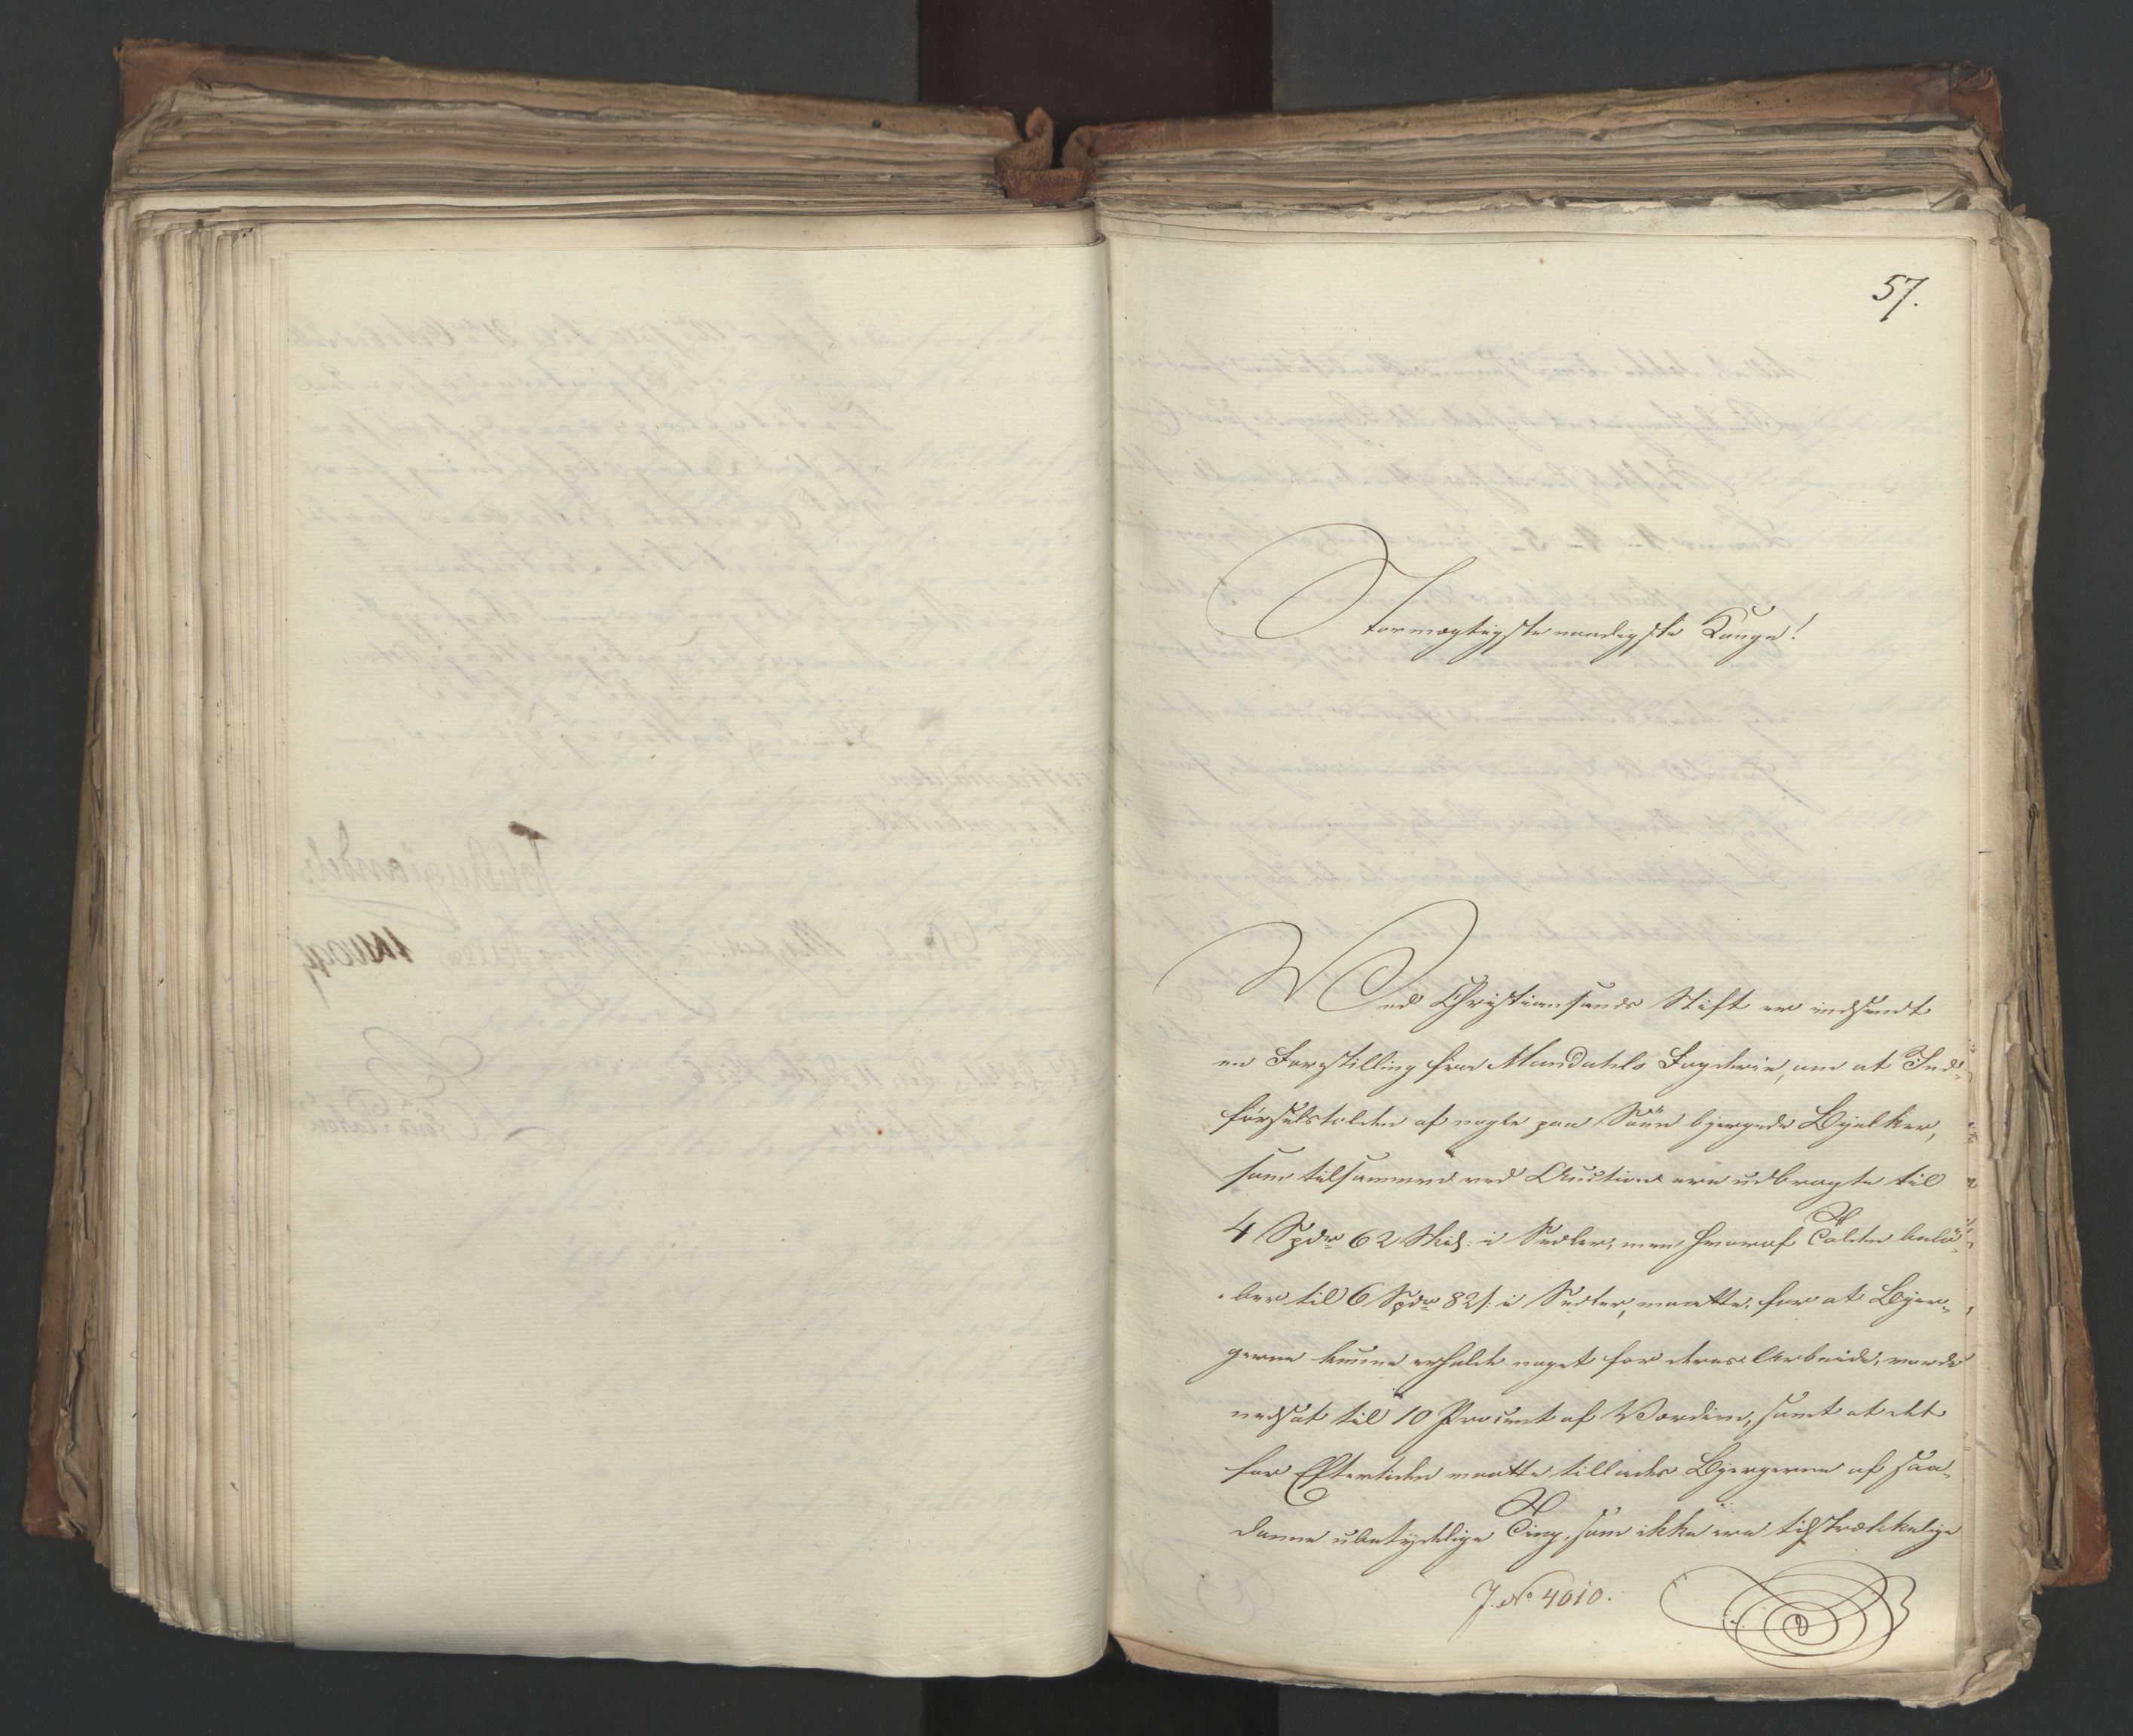 57.
Stormægtigste naadigste Konge!
Ved Christiansands Stift er indsendt
en Forestilling fra Mandahls Fogderie, om at Ind-
førselstolden af nogle paa Søen bjergede Bjelker,
som tilsammen ved Auction ere udbragte til
4 Spdr 62 Skil: i Sedler, men hvoraf Tolden belø-
ber til 6 Spdr 82 s: i Sedler, maatte, for at Bjer-
gerne kunne erholde noget for deres Arbeide, vorde
nedsat til 10 Procent af Værdien, samt at det
for Eftertiden maatte tillades Bjergerne af saa-
danne ubetydelige Ting, som ikke ere tilstrækkelige
J. No 4010.